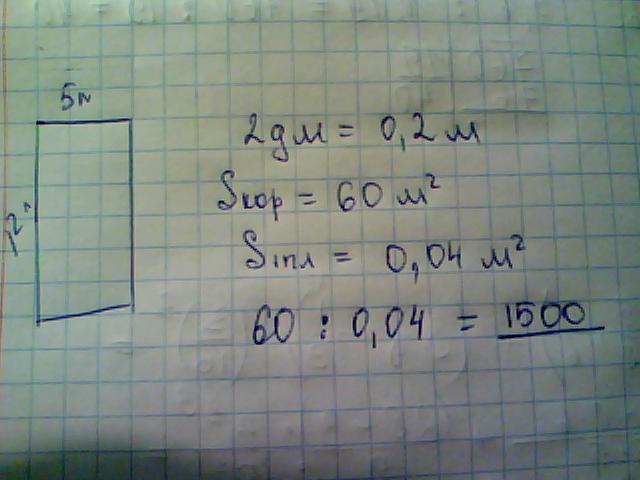 5м
12м
2дм = 0,2 м
Sкор = 60 м²
S1пл = 0,04 м²
60 : 0,04 = 1500